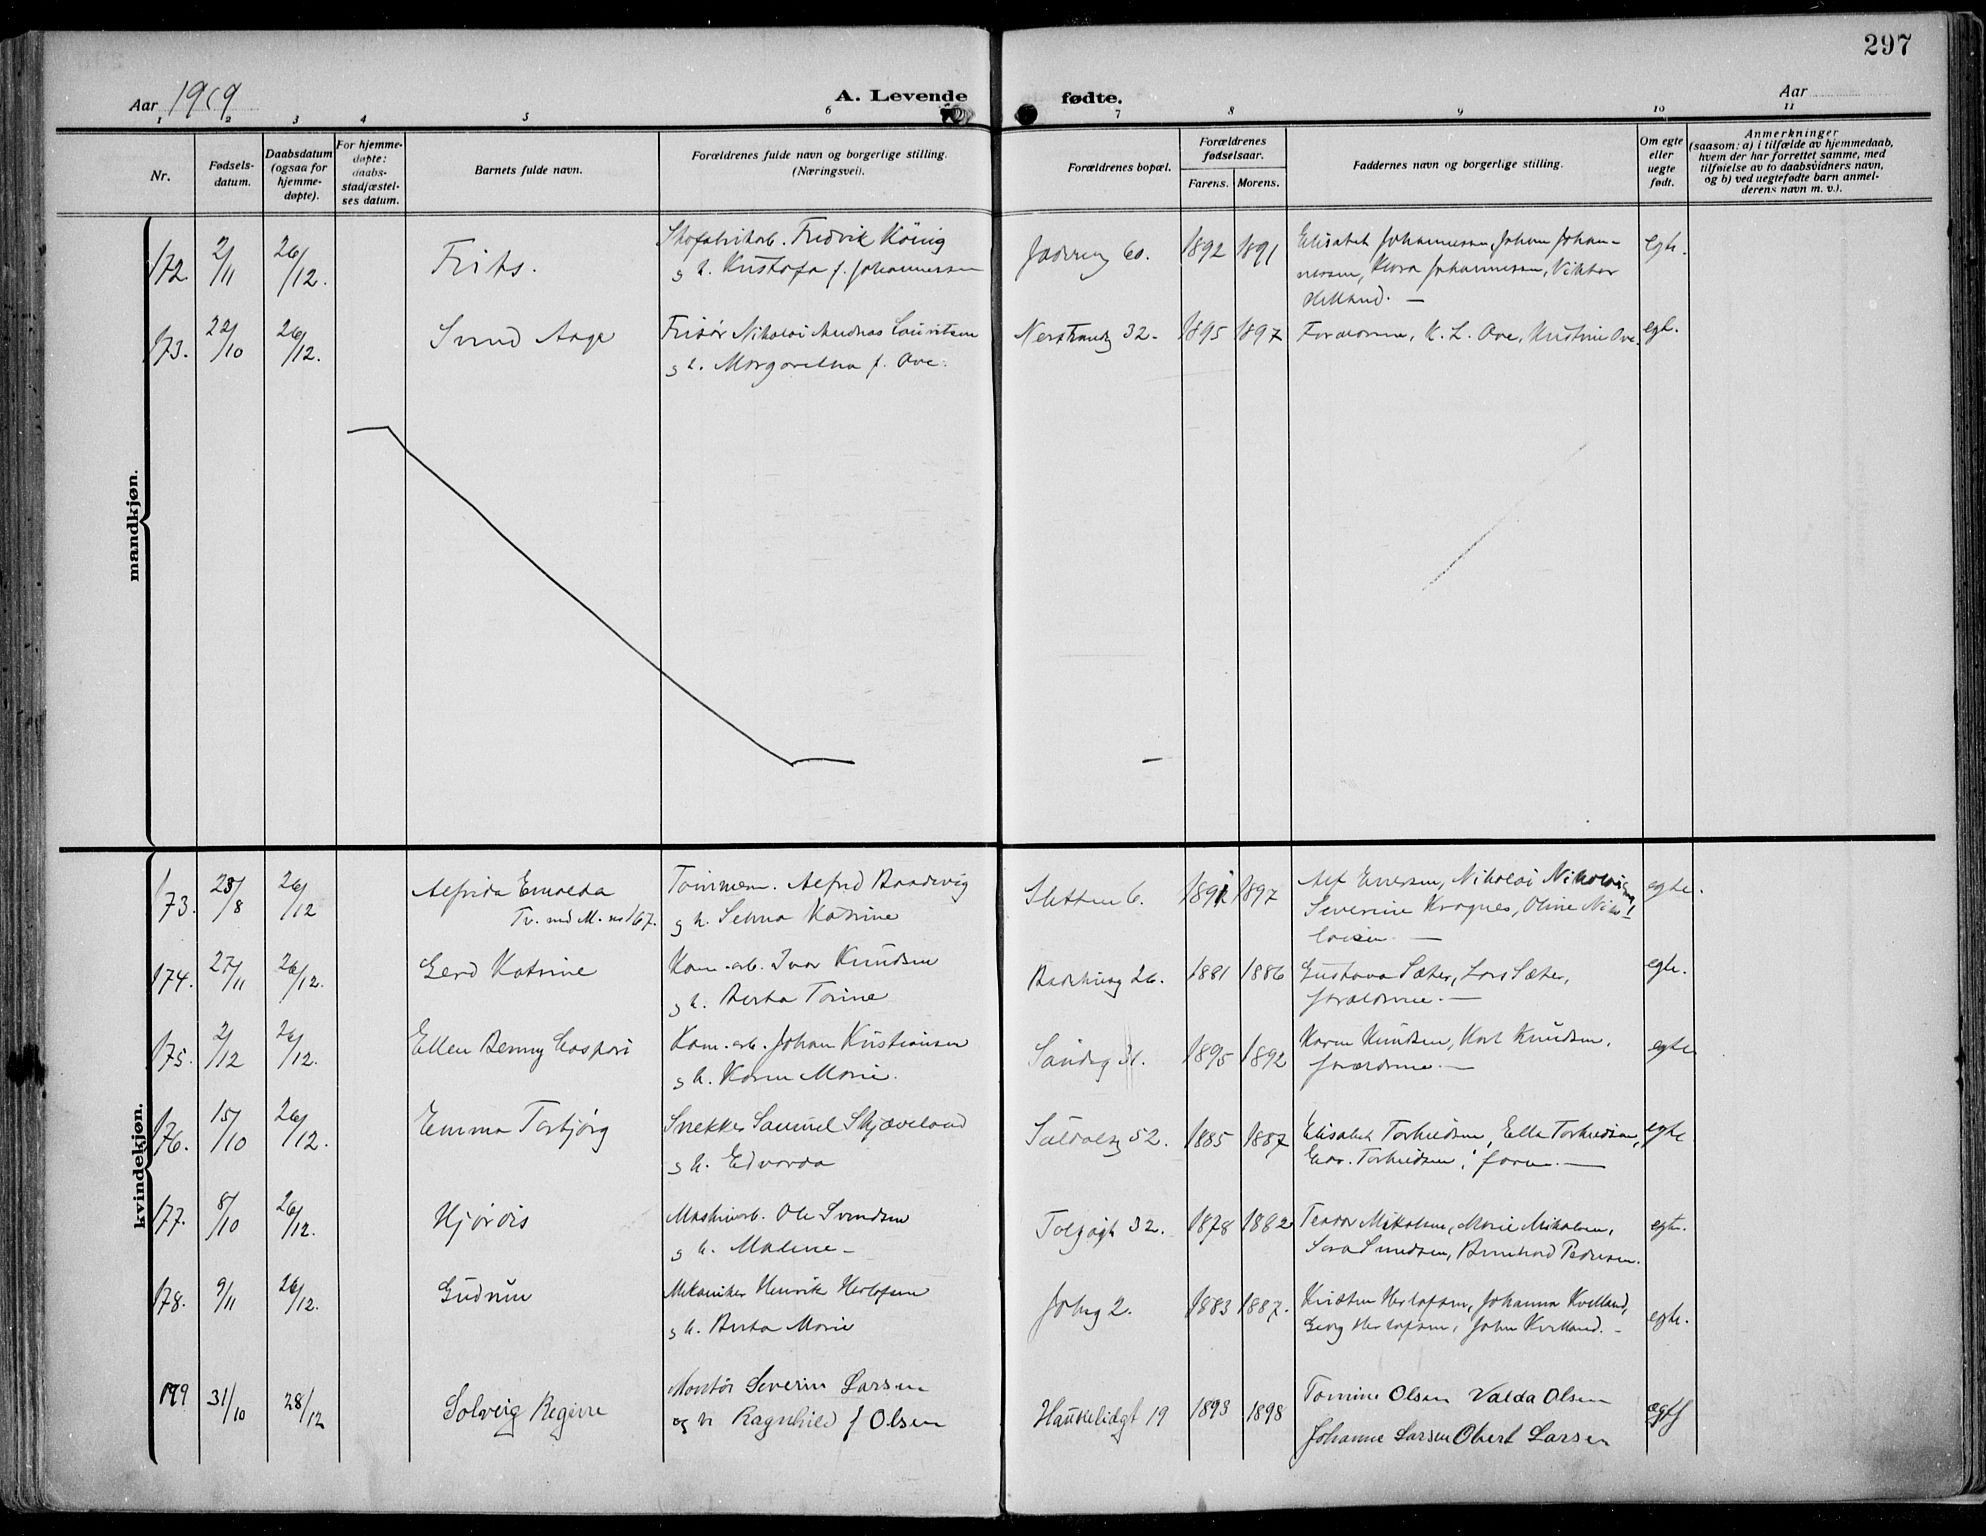 297
Aar 1919
A. Levende fødte.
Aar
1 2 3 4 5 6 7 8 9 10 11
Nr.
Fødsels-
datum.
Daabsdatum
(ogsaa for
hjemme-
døpte).
For hjemme-
døpte:
daabs-
stadfæstel-
ses datum.
Barnets fulde navn.
Forældrenes fulde navn og borgerlige stilling.
(Næringsvei).
Forældrenes bopæl.
Forældrenes
fødselsaar.
Farens. Morens.
Faddernes navn og borgerlige stilling.
Om egte
eller
uegte
født.
Anmerkninger
(saasom: a) i tilfælde av hjemmedaab,
hvem der har forrettet samme, med
tilføielse av to daabsvidners navn,
og b) ved uegtefødte barn anmel-
derens navn m. v.).
mandkjøn.
172 2/11 26/12. Frits. Skofabrikarb. Fredrik König 1892 1891 Elisabet Johannessen, Johan Johan- egte.
g h. Kristofa f. Johannessen
nessen, Klara Johannessen, Viktor
Helland. —
173. 22/10 26/12. Svend Aage Frisör Nikolai Andreas Lauritsen 32. 1895 1897 Forældrene, K. L. Ove, Kristine Ove. egt.
g h. Margaretha f. Ove.
kvindekjøn.
173. 23/8 26/12 Alfrida Tømmerm. Alfred Sletten 6. 1897 Nikolai egte.
Tv. med M. no 167.
g h. Selma Katrine
Severine Kragnes, Oline Niko-
laisen. —
174. 27/11 26/12. Gerd Katrine Kom.arb. Ivar Knudsen 26. 1881 1886 Gustava Sæter, Lars Sæter, egte.
g h. Berta Torine
forældrene. —
175. 2/12 26/12. Ellen Benny Kom.arb. Johan Kristiansen Sandsg 31. 1895 1892 Karen Knudsen, Karl Knudsen, egte
g h. Karen Marie.
forældrene. —
176. 15/10 26/12. Emma Torbjørg Snekker Samuel Skjæveland 52. 1885 1887 Elisabet Torkildsen, Ella Torkildsen, egte
g h. Edvarda
Edv. Torkildsen, faren. —
177. 8/10 26/12. Hjørdis Maskinarb. Ole Svendsen 32. 1878 1882 Teodor Mikalsen, Marie Mikalsen, egte.
g h. Malene —
Sara Svendsen, Bernhard Pedersen.
178. 9/11 26/12. Gudrun Mekaniker Henrik Herlofsen 2. 1883 1887. Kristen Herlofsen, Johanna Kvelland, egte.
g h. Berta Marie
Georg Herlofsen, John Kvelland. —
179 31/10 28/12 Solveig Regine Montør Severin Larsen Haukelidgt 19 1893 1898 Tomine Olsen Valda Olsen ægtf
og h Ragnhild f Olsen
Johanne Larsen Obert Larsen